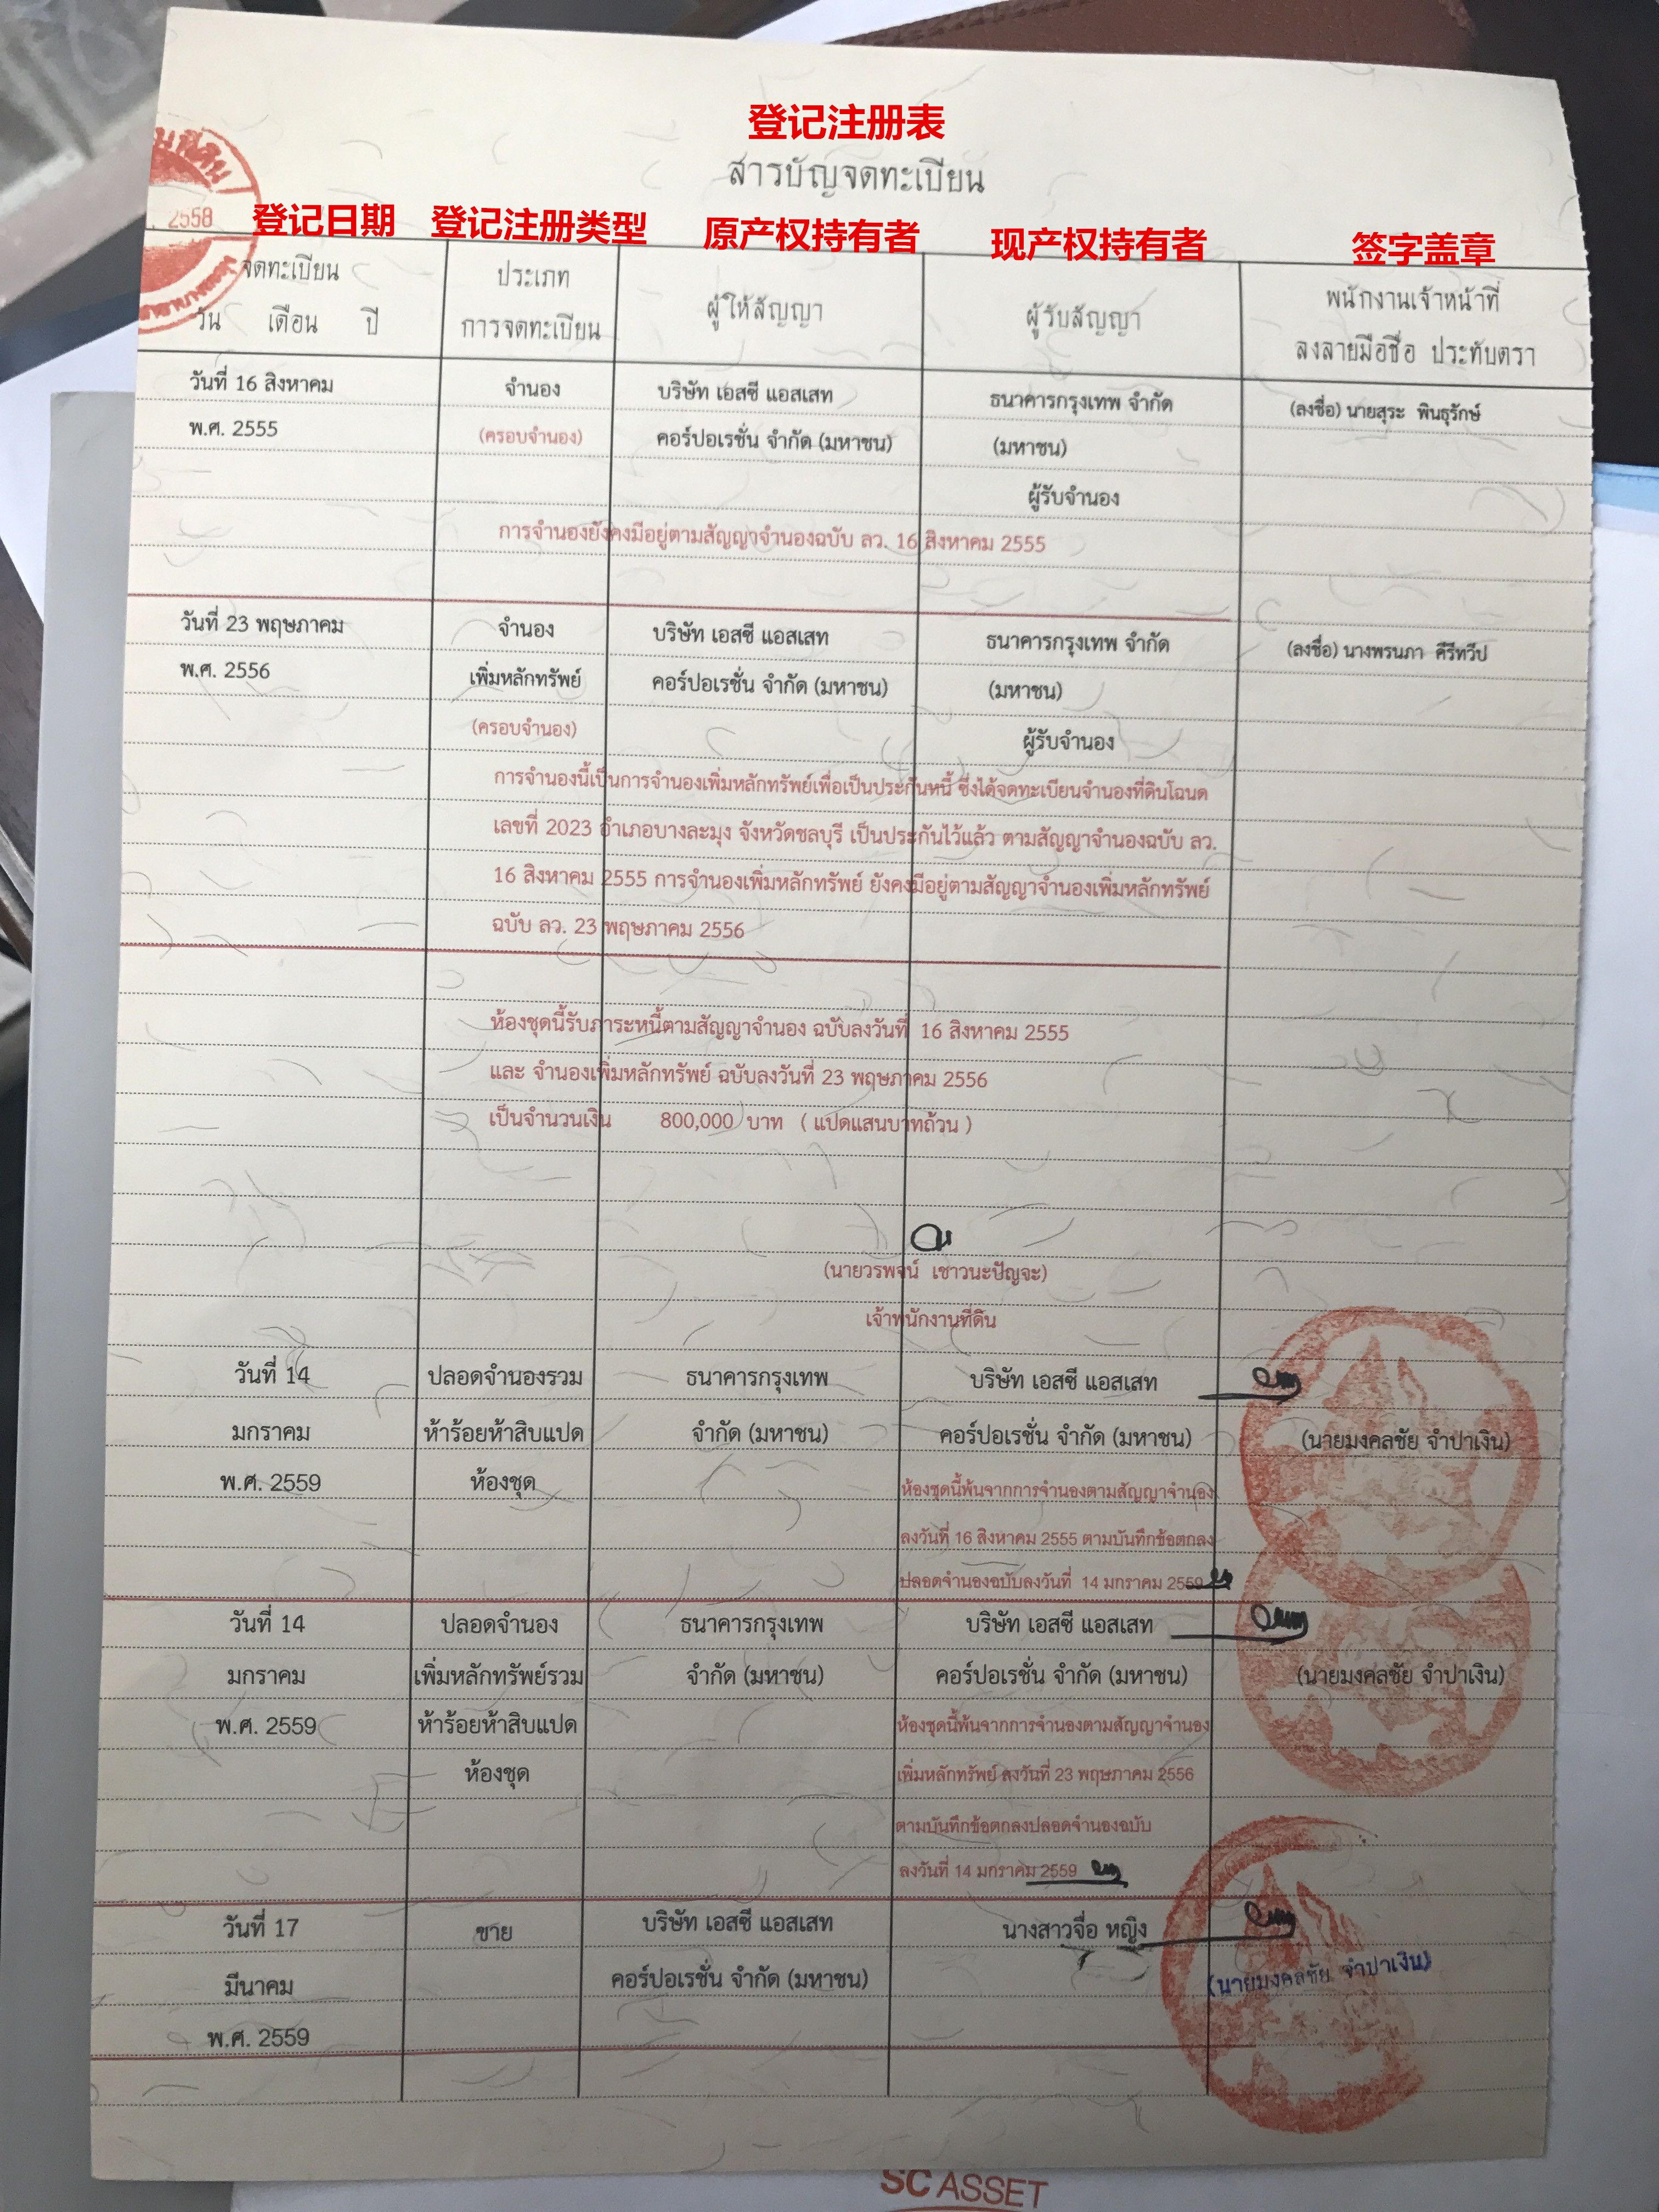 登记注册表
สารบัญจดทะเบียน
2558
登记日期 登记注册类型 原产权持有者 现产权持有者 签字盖章
จดทะเบียน
วัน เดือน ปี
ประเภท
การจดทะเบียน
ผู้ให้สัญญา
ผู้รับสัญญา
พนักงานเจ้าหน้าที่
ลงลายมือชื่อ ประทับตรา
วันที่ 16 สิงหาคม จำนอง บริษัท เอสซี แอสเสท ธนาคารกรุงเทพ จำกัด (ลงชื่อ) นายสุระ พินธุรักษ์
พ.ศ. 2555 (ครอบจำนอง) คอร์ปอเรชั่น จำกัด (มหาชน) (มหาชน)
ผู้รับจำนอง
การจำนองยังคงมีอยู่ตามสัญญาจำนองฉบับ ลว. 16 สิงหาคม 2555
วันที่ 23 พฤษภาคม จำนอง บริษัท เอสซี แอสเสท ธนาคารกรุงเทพ จำกัด (ลงชื่อ) นางพรนภา คีรีทวีป
พ.ศ. 2556 เพิ่มหลักทรัพย์ คอร์ปอเรชั่น จำกัด (มหาชน) (มหาชน)
(ครอบจำนอง) ผู้รับจำนอง
การจำนองนี้เป็นการจำนองเพิ่มหลักทรัพย์เพื่อเป็นประกันหนี้ ซึ่งได้จดทะเบียนจำนองที่ดินโฉนด
เลขที่ 2023 อำเภอบางละมุง จังหวัดชลบุรี เป็นประกันไว้แล้ว ตามสัญญาจำนองฉบับ ลว.
16 สิงหาคม 2555 การจำนองเพิ่มหลักทรัพย์ ยังคงมีอยู่ตามสัญญาจำนองเพิ่มหลักทรัพย์
ฉบับ ลว. 23 พฤษภาคม 2556
ห้องชุดนี้รับภาระหนี้ตามสัญญาจำนอง ฉบับลงวันที่ 16 สิงหาคม 2555
และ จำนองเพิ่มหลักทรัพย์ ฉบับลงวันที่ 23 พฤษภาคม 2556
เป็นจำนวนเงิน 800,000 บาท ( แปดแสนบาทถ้วน )
(นายวรพจน์ เชาวนะปัญจะ)
เจ้าพนักงานที่ดิน
วันที่ 14 ปลอดจำนองรวม ธนาคารกรุงเทพ บริษัท เอสซี แอสเสท
มกราคม ห้าร้อยห้าสิบแปด จำกัด (มหาชน) คอร์ปอเรชั่น จำกัด (มหาชน) (นายมงคลชัย จำปาเงิน)
พ.ศ. 2559 ห้องชุด ห้องชุดนี้พ้นจากการจำนองตามสัญญาจำนอง
ลงวันที่ 16 สิงหาคม 2555 ตามบันทึกข้อตกลง
ปลอดจำนองฉบับลงวันที่ 14 มกราคม 2559
วันที่ 14 ปลอดจำนอง ธนาคารกรุงเทพ บริษัท เอสซี แอสเสท
มกราคม เพิ่มหลักทรัพย์รวม จำกัด (มหาชน) คอร์ปอเรชั่น จำกัด (มหาชน) (นายมงคลชัย จำปาเงิน)
พ.ศ. 2559 ห้าร้อยห้าสิบแปด ห้องชุดนี้พ้นจากการจำนองตามสัญญาจำนอง
ห้องชุด เพิ่มหลักทรัพย์ ลงวันที่ 23 พฤษภาคม 2556
ตามบันทึกข้อตกลงปลอดจำนองฉบับ
ลงวันที่ 14 มกราคม 2559
วันที่ 17 ขาย บริษัท เอสซี แอสเสท นางสาวจื่อ หญิง
มีนาคม คอร์ปอเรชั่น จำกัด (มหาชน) (นายมงคลชัย จำปาเงิน)
พ.ศ. 2559
SC ASSET